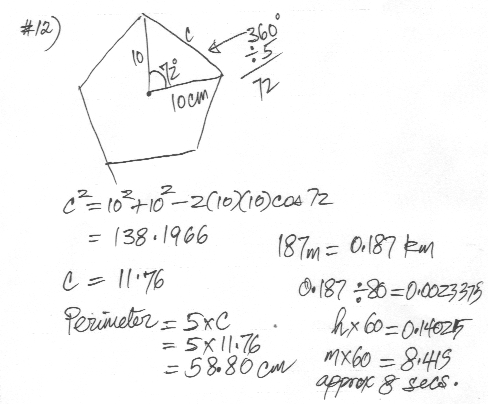 #12)
360°
÷5
72
c
10
72°
10cm
c²=10²+10²-2(10)(10)cos 72
= 138.1966
c = 11.76
Perimeter = 5xC
= 5x11.76
= 58.80 cm
187m = 0.187 km
0.187 ÷80=0.0023375
hx60=0.14025
mx60=8.415
approx 8 secs.